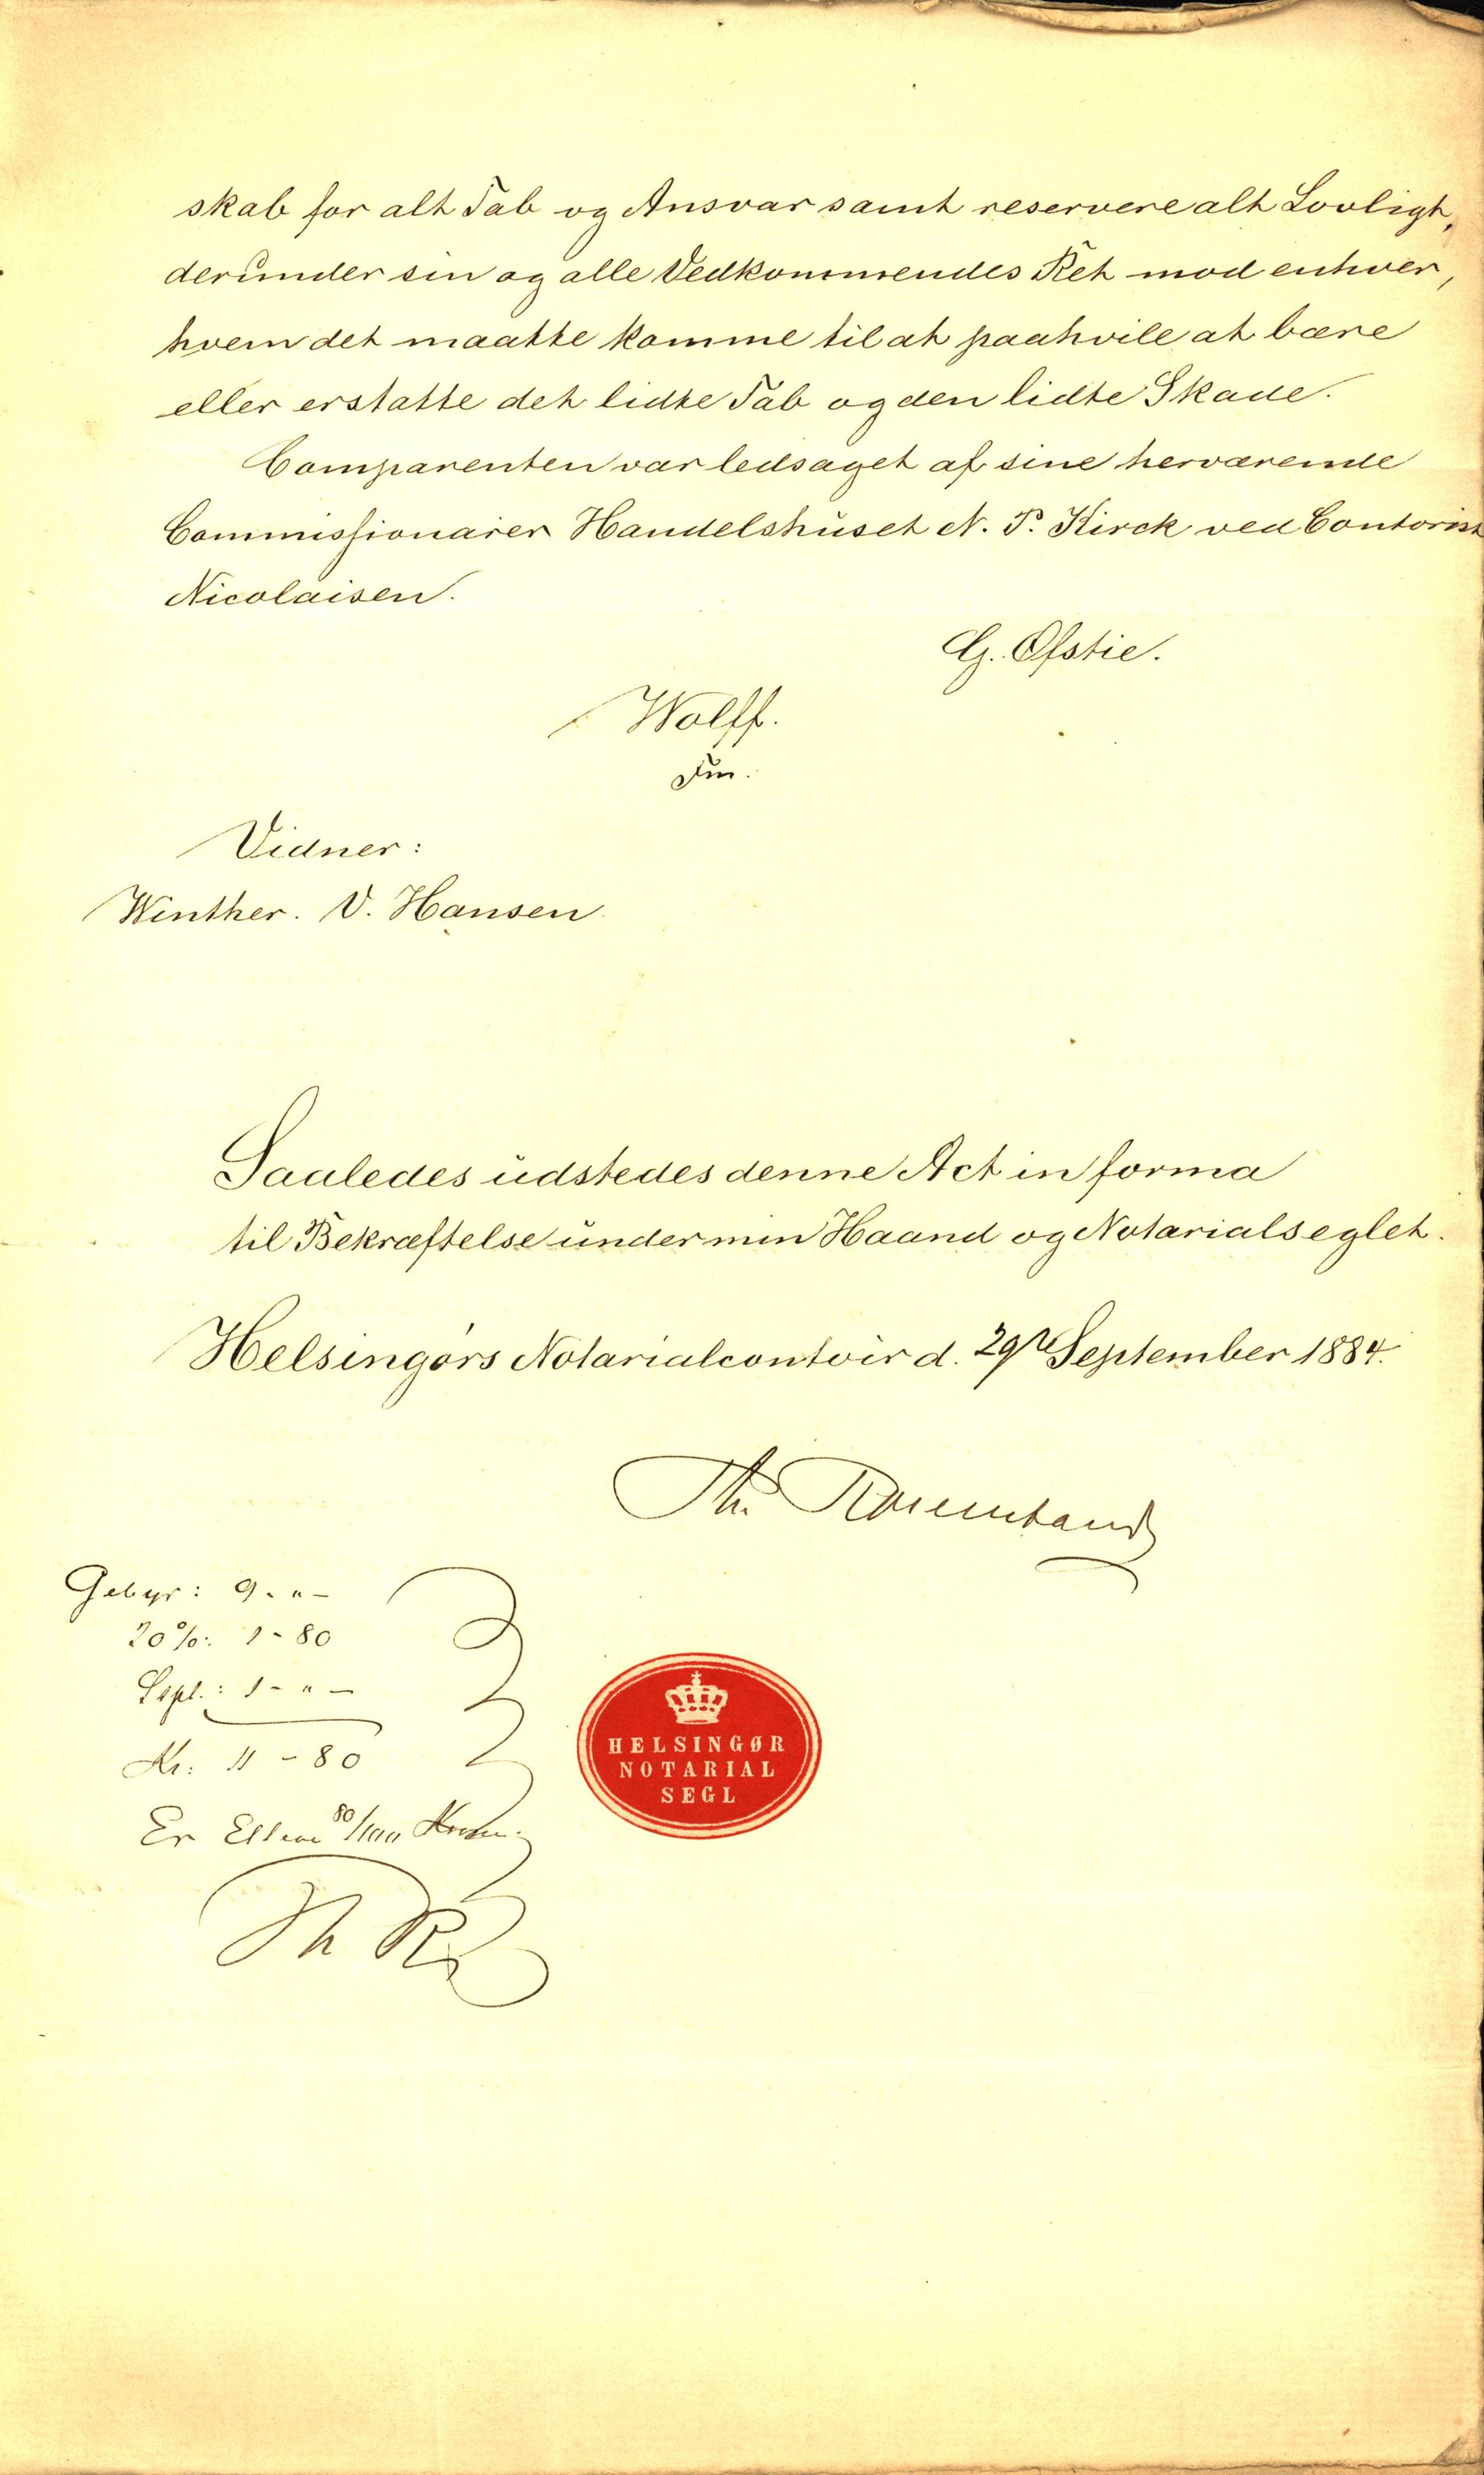 skab for alt Tab og Ansvar samt reservere alt Lovligt,
derunder sin og alle Vedkommendes Ret mod enhver,
hvem det maatte komme til at paahvile at bære
eller erstatte det lidte Tab og den lidte Skade.
Comparenten var ledsaget af sine herværende
Commissionairer Handelshuset N. P. Kirck ved Contorist
Nicolaisen.
G. Ofstie.
Wolff.
Fm.
Vidner:
Winther. V. Hansen.
Saaledes udstedes denne Act in forma
til Bekræftelse under min Haand og Notarialseglet.
Helsingørs Notarialcontoir d. 29de September 1884.
Th. Rosenstand
Gebyr: 9 - " -
20%: 1 - 80
Sspl.: 1 - " -
Kr: 11 - 80
Er Elleve 80/100 Kroner.
Th R
HELSINGØR
NOTARIAL
SEGL